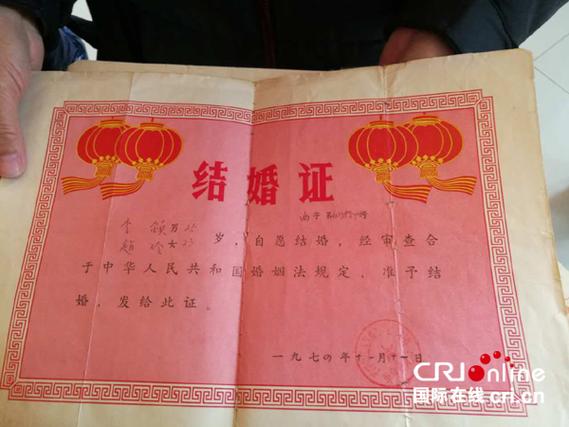 结婚证
男
女 岁，自愿结婚，经审查合
于中华人民共和国婚姻法规定，准予结
婚，发给此证。
一九七四年十一月十一日
CRI Online
国际在线 cri.cn